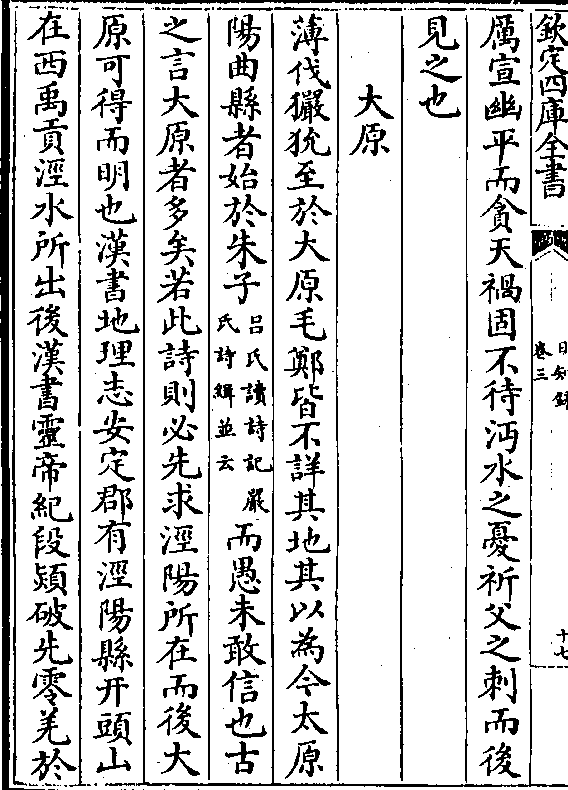 欽定四庫全書
日知錄
卷三
十七
厲宣幽平而貪天禍固不待沔水之憂祈父之刺而後
見之也
大原
薄伐玁狁至於大原毛鄭皆不詳其地其以為今太原
陽曲縣者始於朱子
呂氏讀詩記嚴
氏詩緝並云
而愚未敢信也古
之言大原者多矣若此詩則必先求涇陽所在而後大
原可得而明也漢書地理志安定郡有涇陽縣幵頭山
在西禹貢涇水所出後漢書靈帝紀段熲破先零羌於